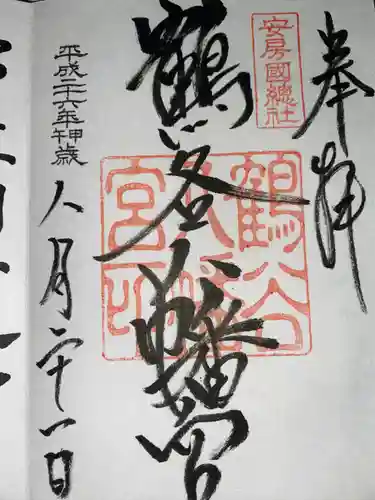 奉拝
安房國總社
鶴谷八幡宮
鶴谷八幡宮印
平成二十六年神歳
八月二十一日